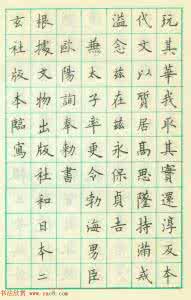 玩其華我取其實還淳反本
代文以質居高思墜持滿戒
溢念茲在茲永保貞吉
兼太子率更令勃海男臣
歐陽詢奉勅書
根據文物出版社和日本二
玄社版本臨寫